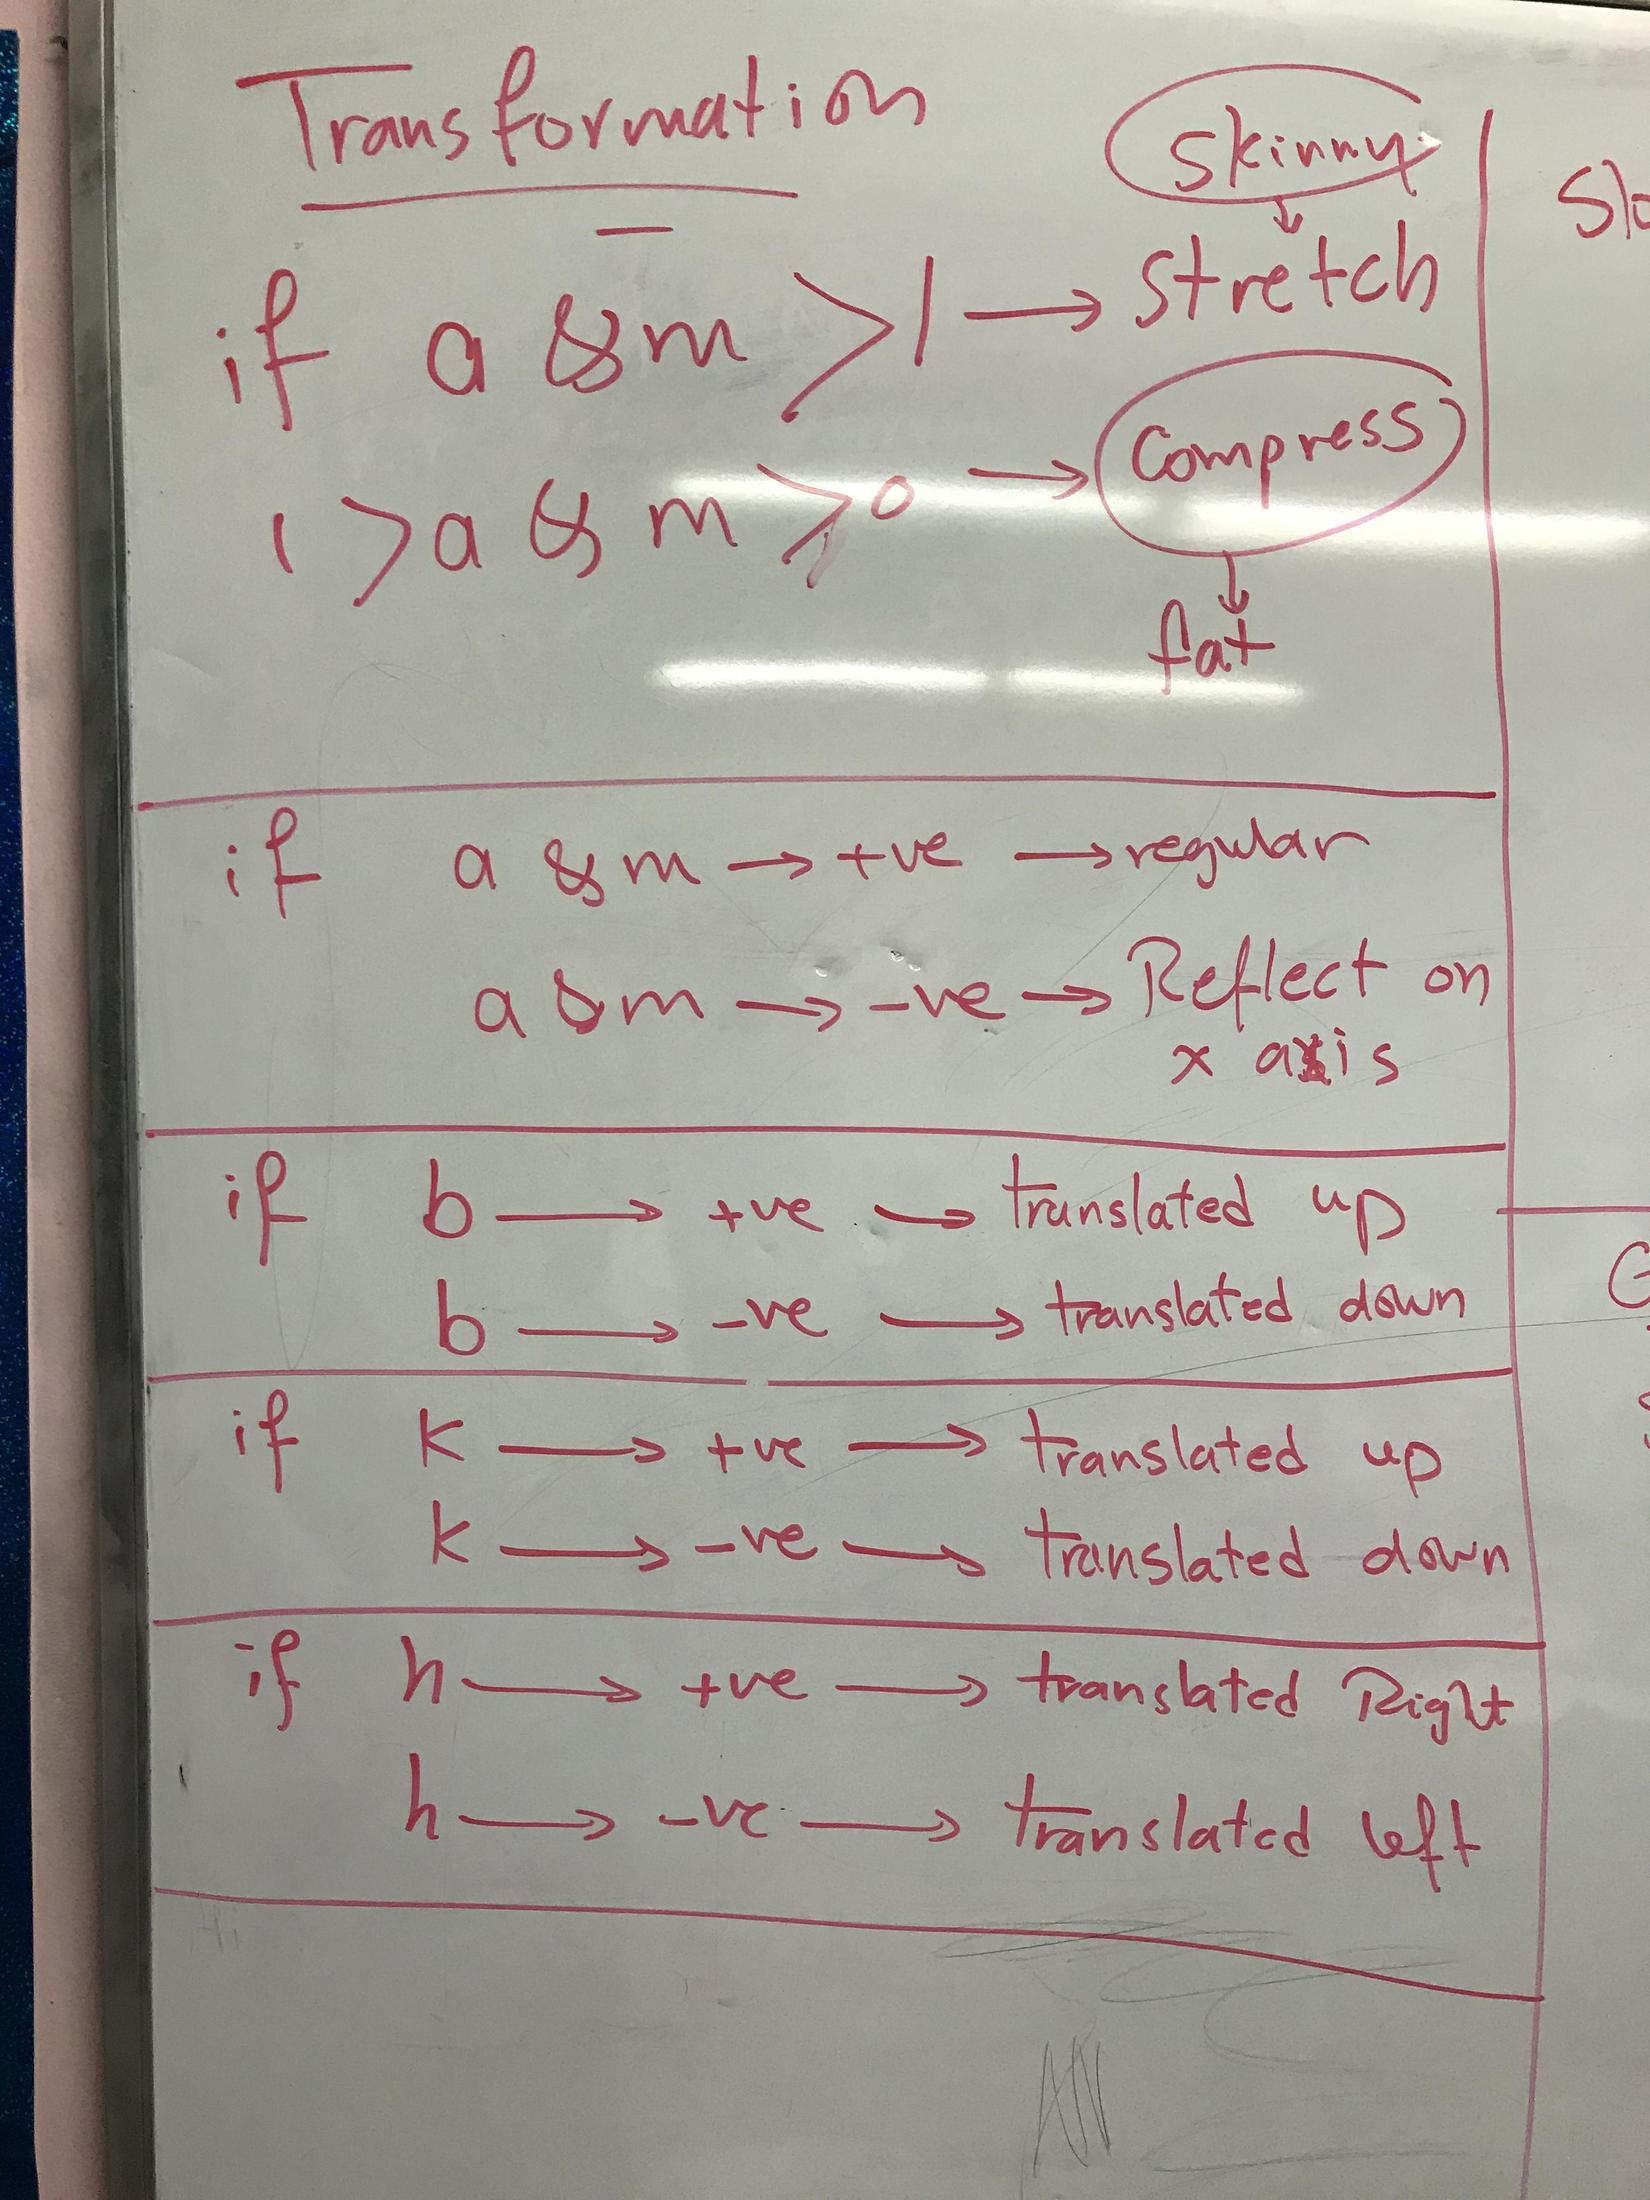 Transformation
skinny
if a & m > 1 → stretch
1 > a & m > 0 → compress
fat
if a & m → +ve → regular
a & m → -ve → Reflect on
x axis
if b → +ve → translated up
b → -ve → translated down
if k → +ve → translated up
k → -ve → translated down
if h → +ve → translated Right
h → -ve → translated left